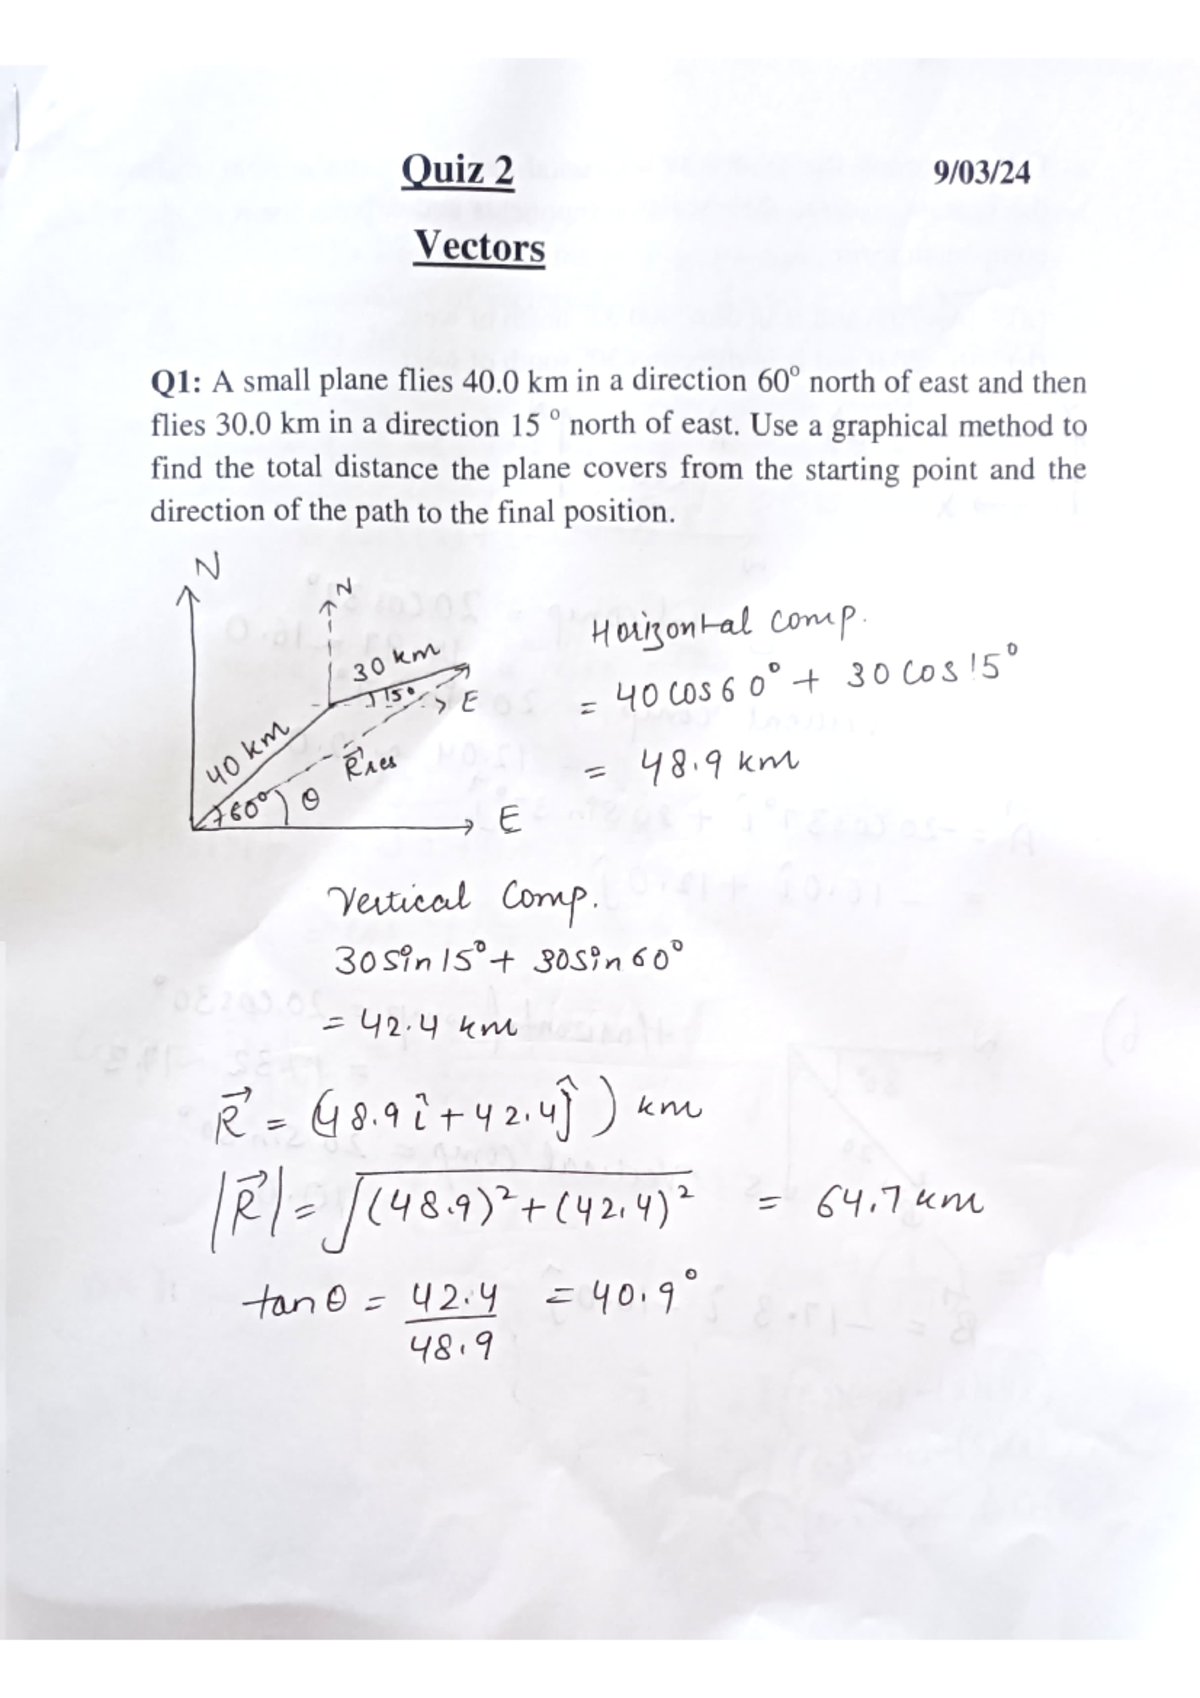 Quiz 2 9/03/24
Vectors
Q1: A small plane flies 40.0 km in a direction 60° north of east and then
flies 30.0 km in a direction 15 ° north of east. Use a graphical method to
find the total distance the plane covers from the starting point and the
direction of the path to the final position.
N
N
30 km
15°
E
40 km
R⃗res
60° θ
E
Horizontal comp.
= 40 cos 60° + 30 cos 15°
= 48.9 km
Vertical Comp.
30 sin 15° + 30 sin 60°
= 42.4 km
R⃗ = (48.9 î + 42.4 ĵ) km
|R⃗| = √(48.9)² + (42.4)² = 64.7 km
tan θ = 42.4 = 40.9°
48.9